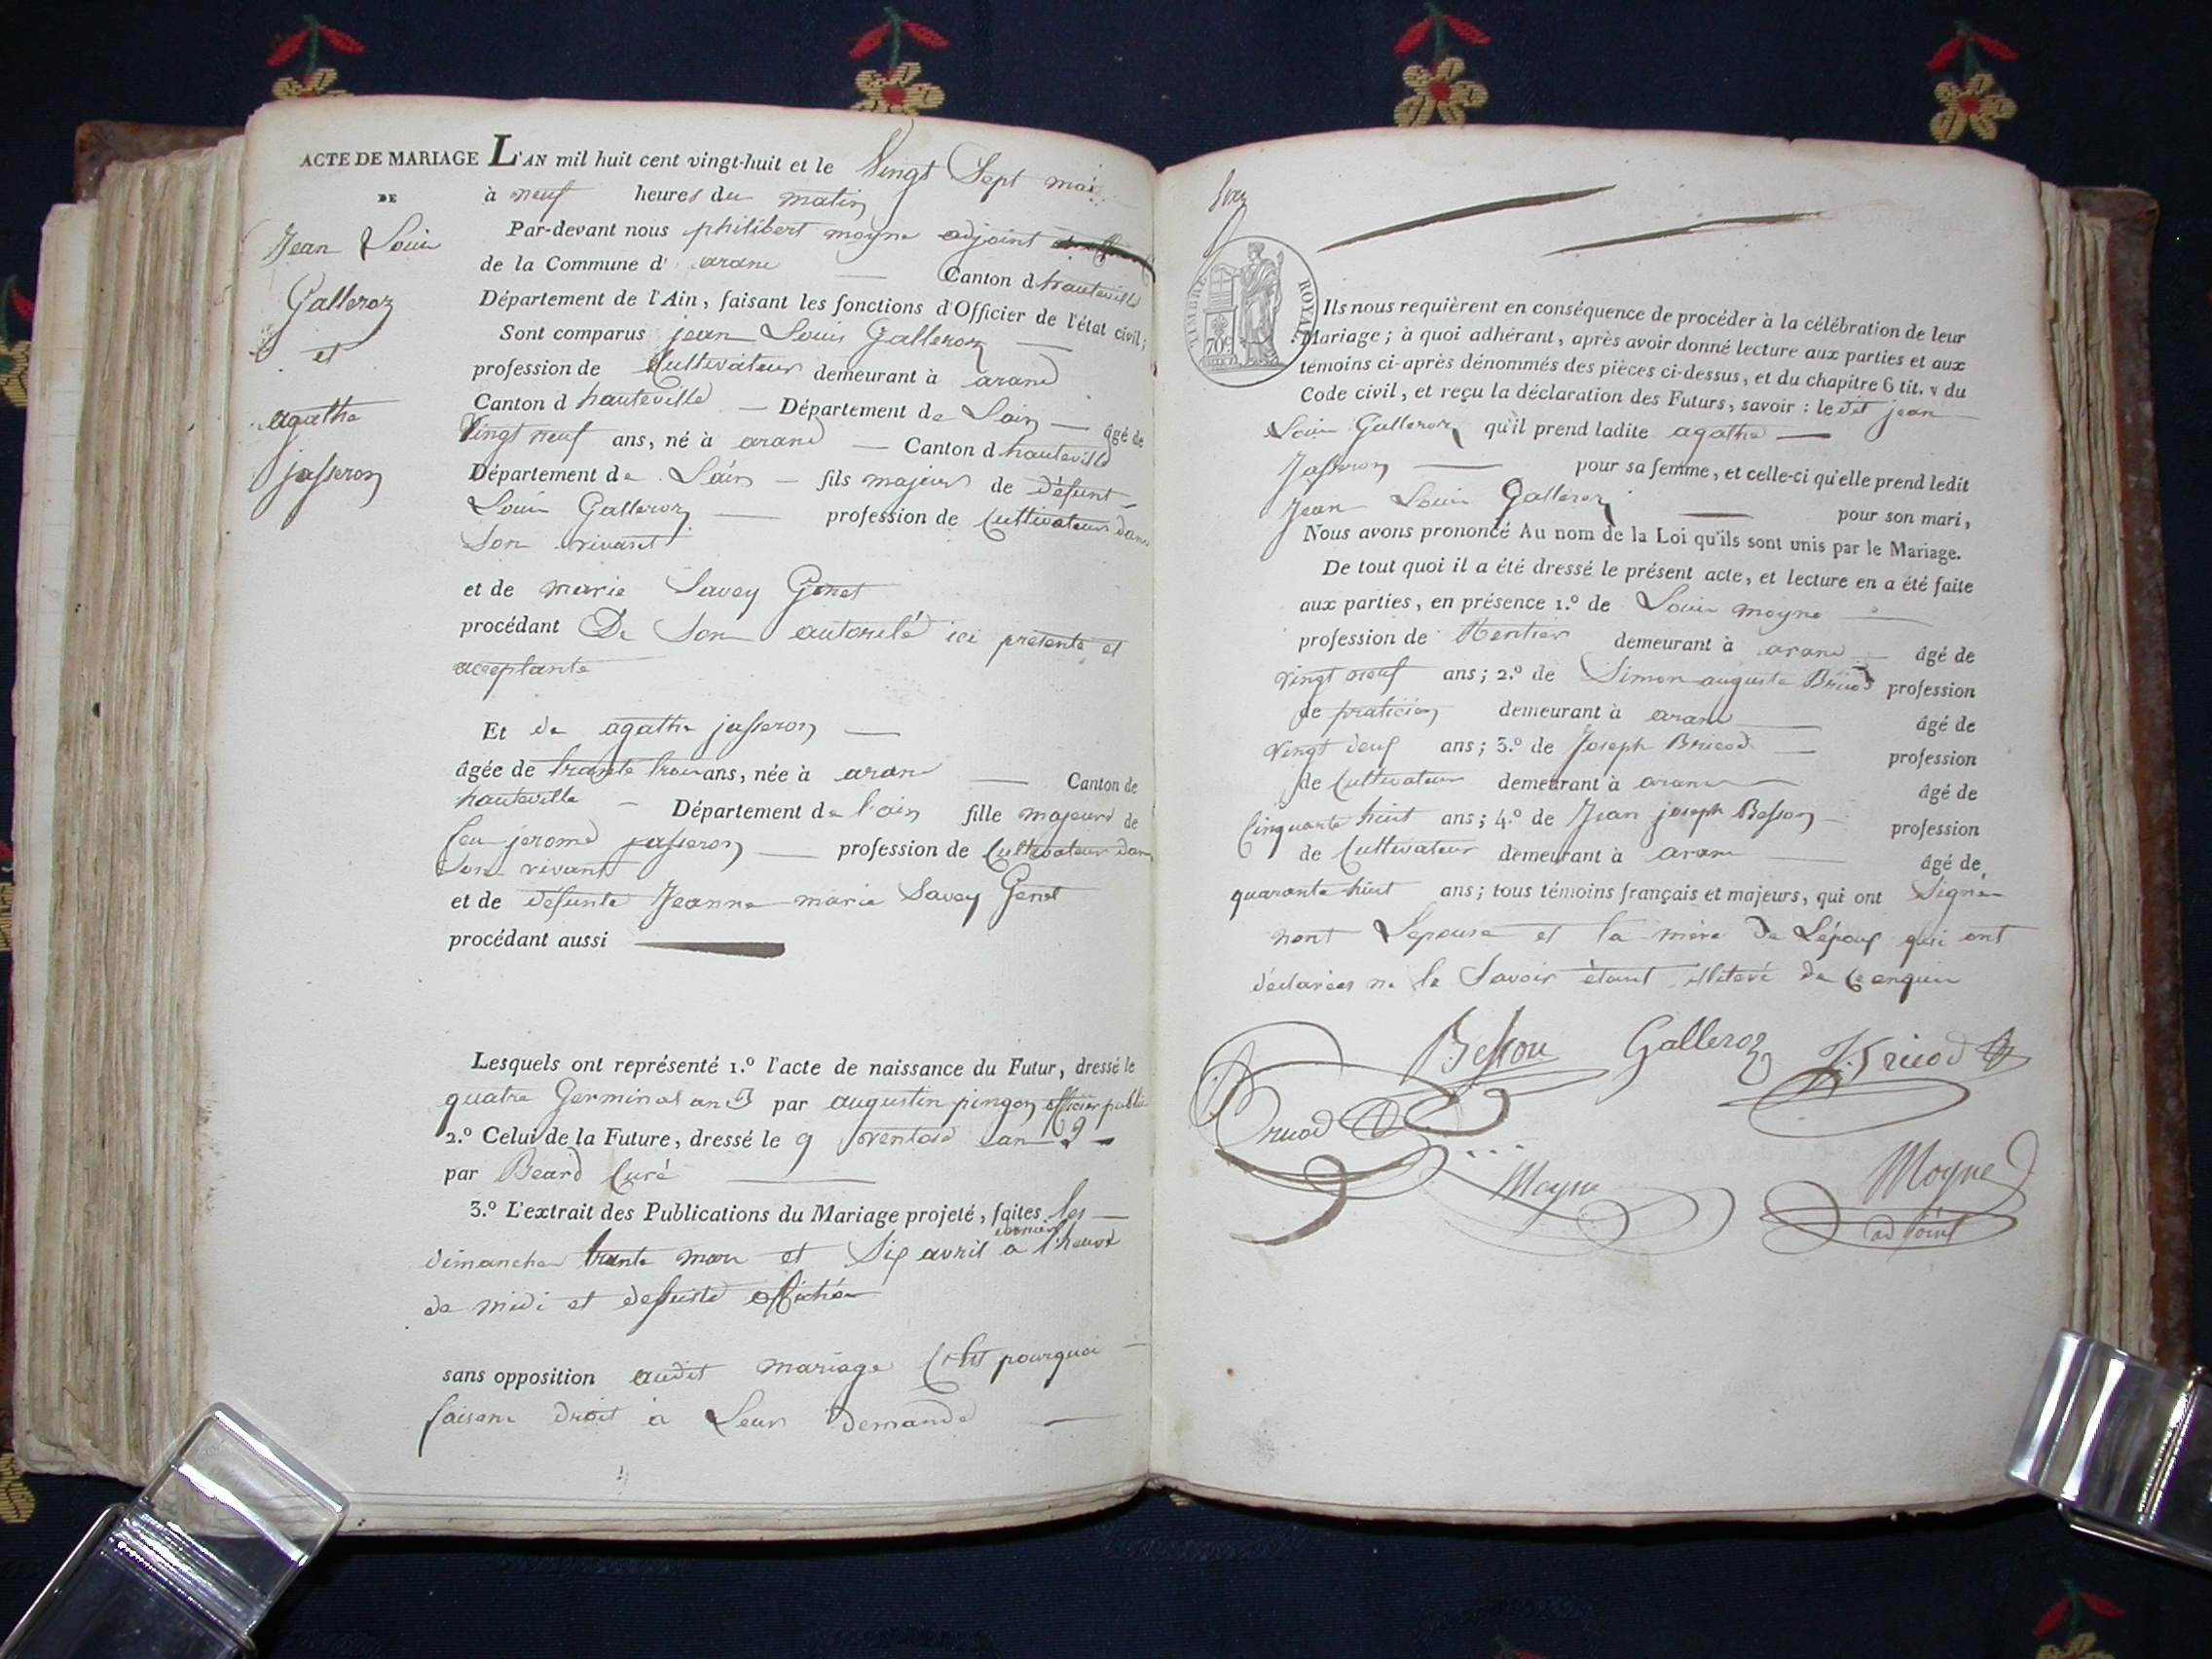 ACTE DE MARIAGE
DE
Jean Louis
Galleroz
et
agathe
jasseron
L'AN mil huit cent vingt-huit et le Vingt Sept mai
à neuf heures du matin
Par-devant nous philibert moyne adjoint
de la Commune d' aranc Canton d hauteville
Département de l'Ain, faisant les fonctions d'Officier de l'état civil;
Sont comparus jean Louis Galleroz
profession de Cultivateur demeurant à aranc
Canton d hauteville — Département de Lain — âgé de
Vingt neuf ans, né à aranc — Canton d hauteville
Département de Lain — fils majeur de défunt
Louis Galleroz — profession de Cultivateur dans
Son vivant
et de marie Savey Genet
procédant De Son autorité ici presente et
acceptante
Et de agathe jasseron —
âgée de trante trois ans, née à aranc — Canton de
hauteville — Département de l'ain fille majeure de
feu jerome jasseron — profession de Cultivateur dans
Son vivant
et de défunte Jeanne marie Savey Genet
procédant aussi
Lesquels ont représenté 1.º l'acte de naissance du Futur, dressé le
quatre Germinal an par augustin pingon officier public
2.º Celui de la Future, dressé le 9 ventose an
par Beard Curé
3.º L'extrait des Publications du Mariage projeté, faites les —
dimanches trante mars et Six avril dernier a l'heure
de midi et desuite affichés
sans opposition audit mariage C'est pourquoi —
faisant droit a Leur demande —
TIMBRE ROYAL
70c
Ils nous requièrent en conséquence de procéder à la célébration de leur
Mariage; à quoi adhérant, après avoir donné lecture aux parties et aux
témoins ci-après dénommés des pièces ci-dessus, et du chapitre 6 tit. v du
Code civil, et reçu la déclaration des Futurs, savoir: le dit jean
Louis Galleroz qu'il prend ladite agathe —
Jasseron — pour sa femme, et celle-ci qu'elle prend ledit
Jean Louis Galleroz — pour son mari,
Nous avons prononcé Au nom de la Loi qu'ils sont unis par le Mariage.
De tout quoi il a été dressé le présent acte, et lecture en a été faite
aux parties, en présence 1.º de Louis moyne —
profession de Rentier demeurant à aranc — âgé de
vingt neuf ans; 2.º de Simon auguste Bricod profession
de praticien demeurant à aranc — âgé de
vingt deux ans; 3.º de Joseph Bricod — profession
de Cultivateur demeurant à aranc — âgé de
Cinquante huit ans; 4.º de Jean joseph Besson — profession
de Cultivateur demeurant à aranc — âgé de
quarante huit ans; tous témoins français et majeurs, qui ont Signé
nont Lepouse et la mère de Lépoux qui ont
déclarées ne le Savoir étant illiteré de ce enquis
Besson Galleroz Bricod
Bricod
Moyne Moyne
adjoint